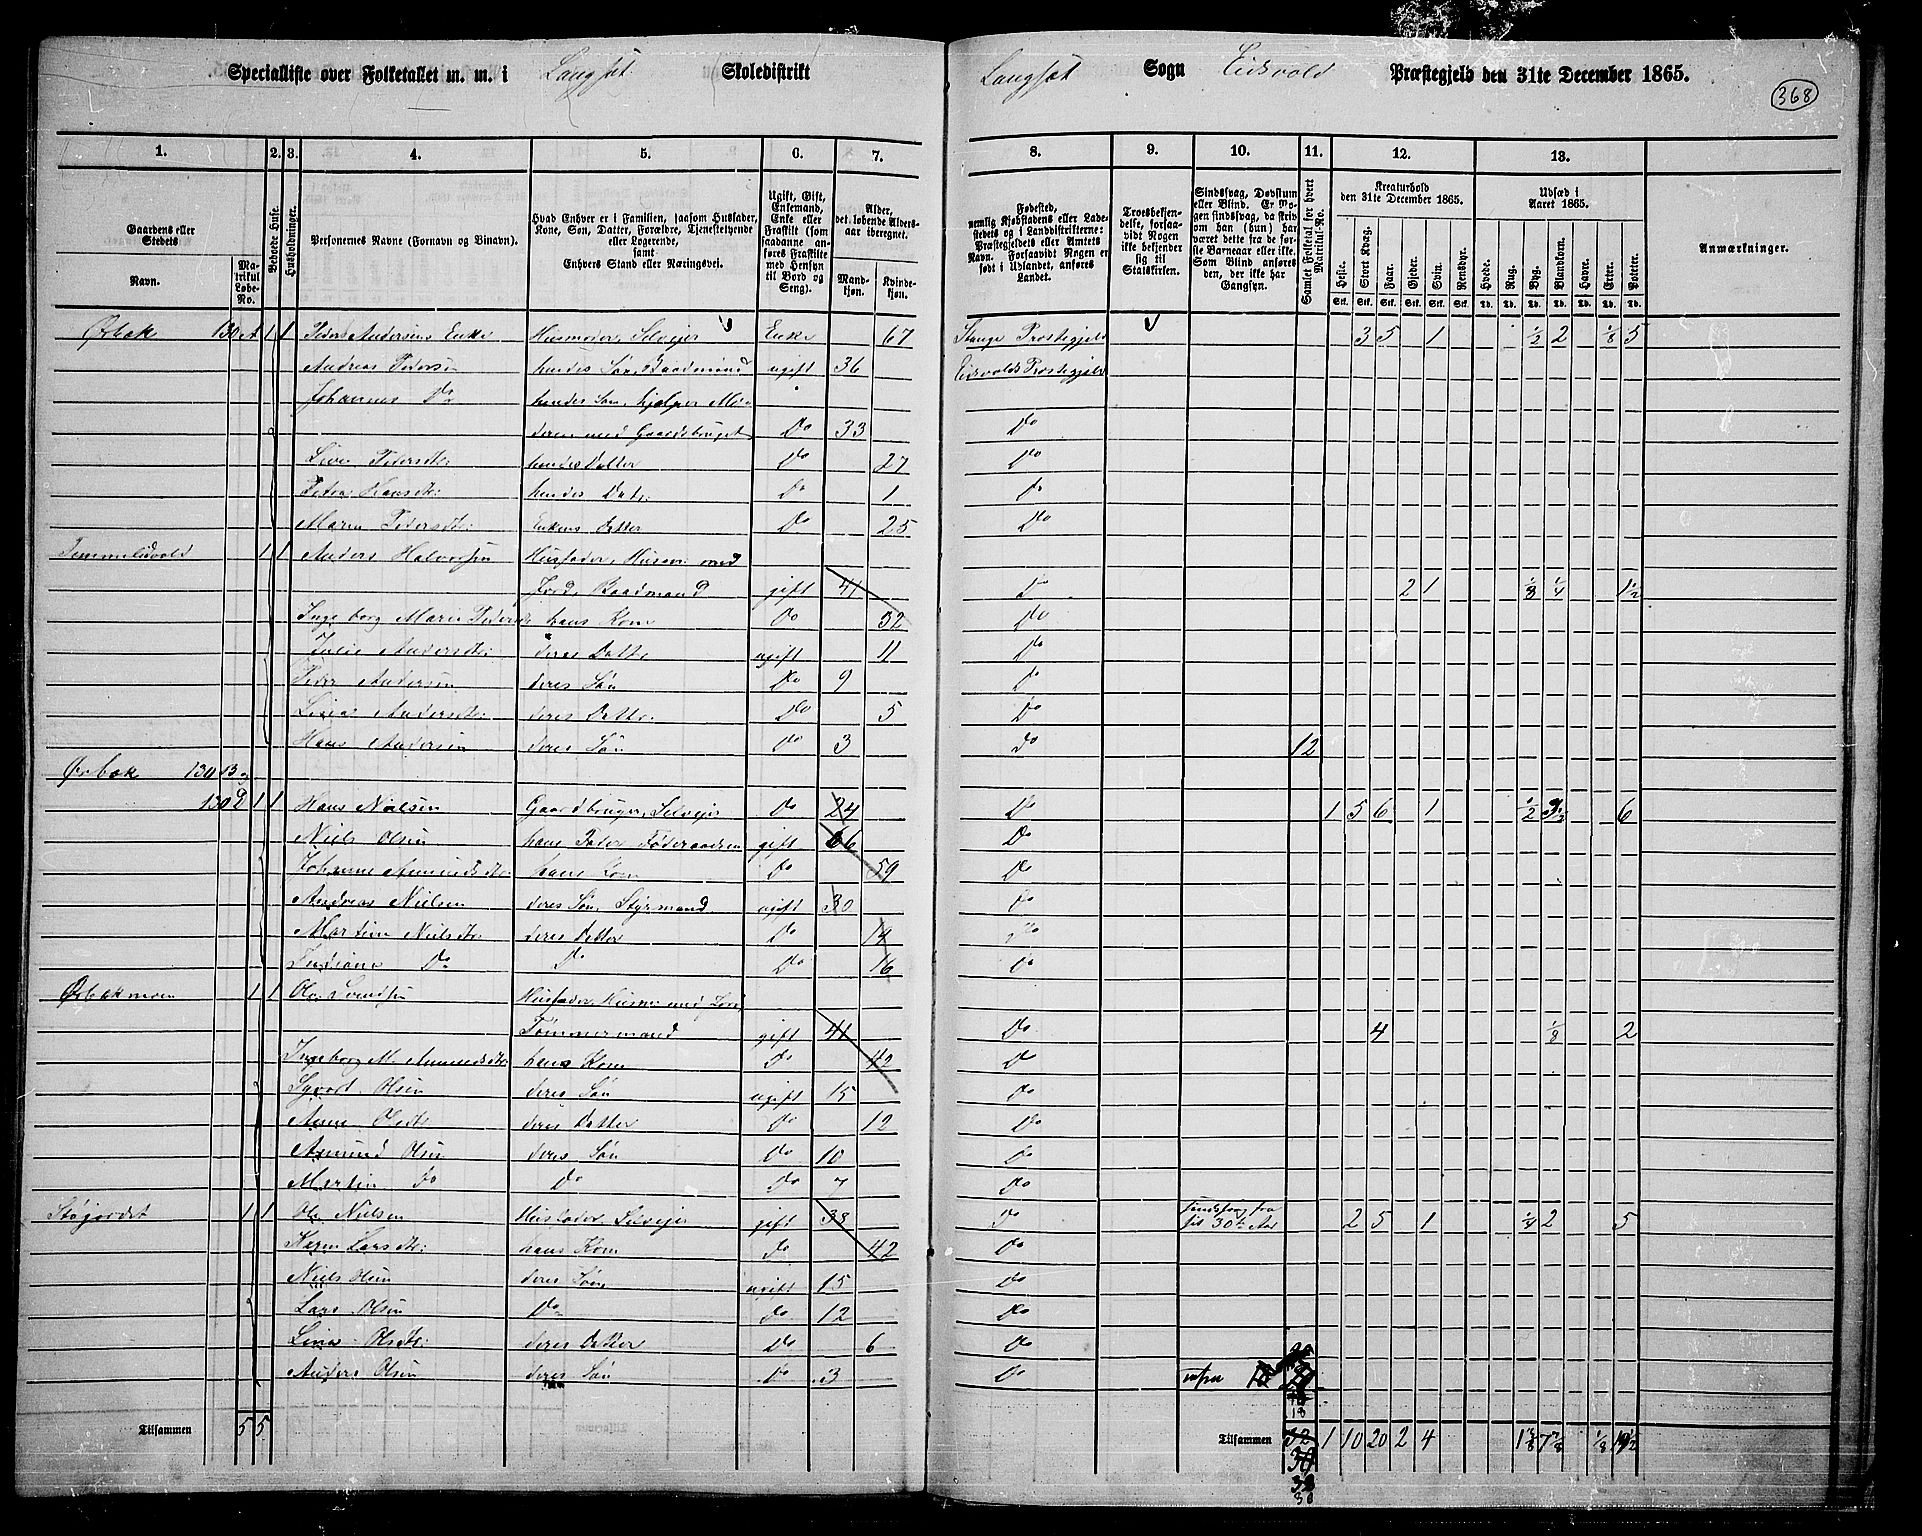 Specialliste over Folketallet m. m. i Langset Skoledistrikt
Langset Sogn Eidsvold Præstegjeld den 31te December 1865.
368
1. 2. 3. 4. 5. 6. 7.
8. 9. 10. 11. 12. 13.
Gaardens eller Stedets
Navn.
Matrikul Løbe-No.
Beboede Huse.
Husholdninger.
Personernes Navne (Fornavn og Binavn).
Hvad Enhver er i Familien, saasom Husfader, Kone, Søn, Datter, Forældre, Tjenestetyende eller Logerende, samt Enhvers Stand eller Næringsvei.
Ugift, Gift, Enkemand, Enke eller Fraskilt (som saadanne anføres Fraskilte med Hensyn til Bord og Seng).
Alder, det løbende Alders-aar iberegnet.
Mandkjøn. Kvindekjøn.
Fødested, nemlig Kjøbstadens eller Ladestedets og i Landdistrikterne: Præstegjeldets eller Amtets Navn. Forsaavidt Nogen er født i Udlandet, anføres Landet.
Troesbekjendelse, forsaavidt Nogen ikke bekjender sig til Statskirken.
Sindssvag, Døvstum eller Blind. Er Nogen sindssvag, da skrives om han (hun) har været dette fra de første Barneaar eller ikke. Som Blind anføres den, der ikke har Gangsyn.
Samlet Folketal for hvert Matrikul-No.
Kreaturhold den 31te December 1865.
Heste. Stort Kvæg. Faar. Gjeder. Svin. Rensdyr.
Udsæd i Aaret 1865.
Hvede. Rug. Byg. Blandkorn. Havre. Erter. Poteter.
Anmærkninger.
Ørbæk 130 A 1 1 Peder Andersens Enke Husmoder, Selveier Enke 67 Stange Præstegjeld 3 5 1 1/2 2 1/8 5
Andreas Pedersen hendes Søn, Baadsmand ugift 36 Eidsvolds Præstegjeld
Johannes Do hendes Søn, hjælper Mo-
deren med Gaardsbruget Do 33 Do
Pedersdtr: hendes Datter Do 27 Do
Petra Hansdtr: hendes Datr: Do 1 Do
Maren Pedersdtr: Enkens Datter Do 25 Do
1 1 Anders Halvorsen Husfader, Husm: med
Jord, Baadmand gift 41 Do 2 1 1/8 1/4 1 1/2
Ingeborg Marie Pedersdtr hans Kone Do 32 Do
Julie Andersdtr: deres Datter ugift 11 Do
Peder Andersen deres Søn Do 9 Do
Andersdtr: deres Datter Do 5 Do
Hans Andersen deres Søn Do 3 Do 12
Ørbæk 130 B og
130 D 1 1 Hans Nielsen Gaardbruger, Selveier Do 24 Do 1 5 6 1 1/2 3 1/2 6
Niels Olsen hans Fader Føderaadsm gift 66 Do
Johanne Amundsdtr: hans Kone Do 59 Do
Andreas Nielsen deres Søn, Styrmand ugift 30 Do
Nielsdtr: deres Datter Do 19 Do
Do Do Do 16 Do
Ørbækmoen 1 1 Ole Svendsen Husfader, Husm: med Jord,
Tømmermand gift 41 Do 4 1/8 2
Ingeborg M. Amundsdtr: hans Kone Do 42 Do
Syvert Olsen deres Søn ugift 15 Do
Anne Olsdtr deres Datter Do 12 Do
Amund Olsen deres Søn Do 10 Do
Martin Do Do Do 7 Do
Støjordet 1 1 Ole Nielsen Husfader, Selveier gift 38 Do Sindssvag fra
sit 30te Aar 2 5 1 1/4 2 5
Karen Larsdtr: hans Kone Do 42 Do
Niels Olsen deres Søn ugift 15 Do
Lars Olsen Do Do 12 Do
Olsdtr: deres Datter Do 6 Do
Anders Olsen deres Søn Do 3 Do
18
Tilsammen 5 5
Tilsammen 32 1 10 20 2 4 1 3/8 7 7/8 1/8 19 1/2
30